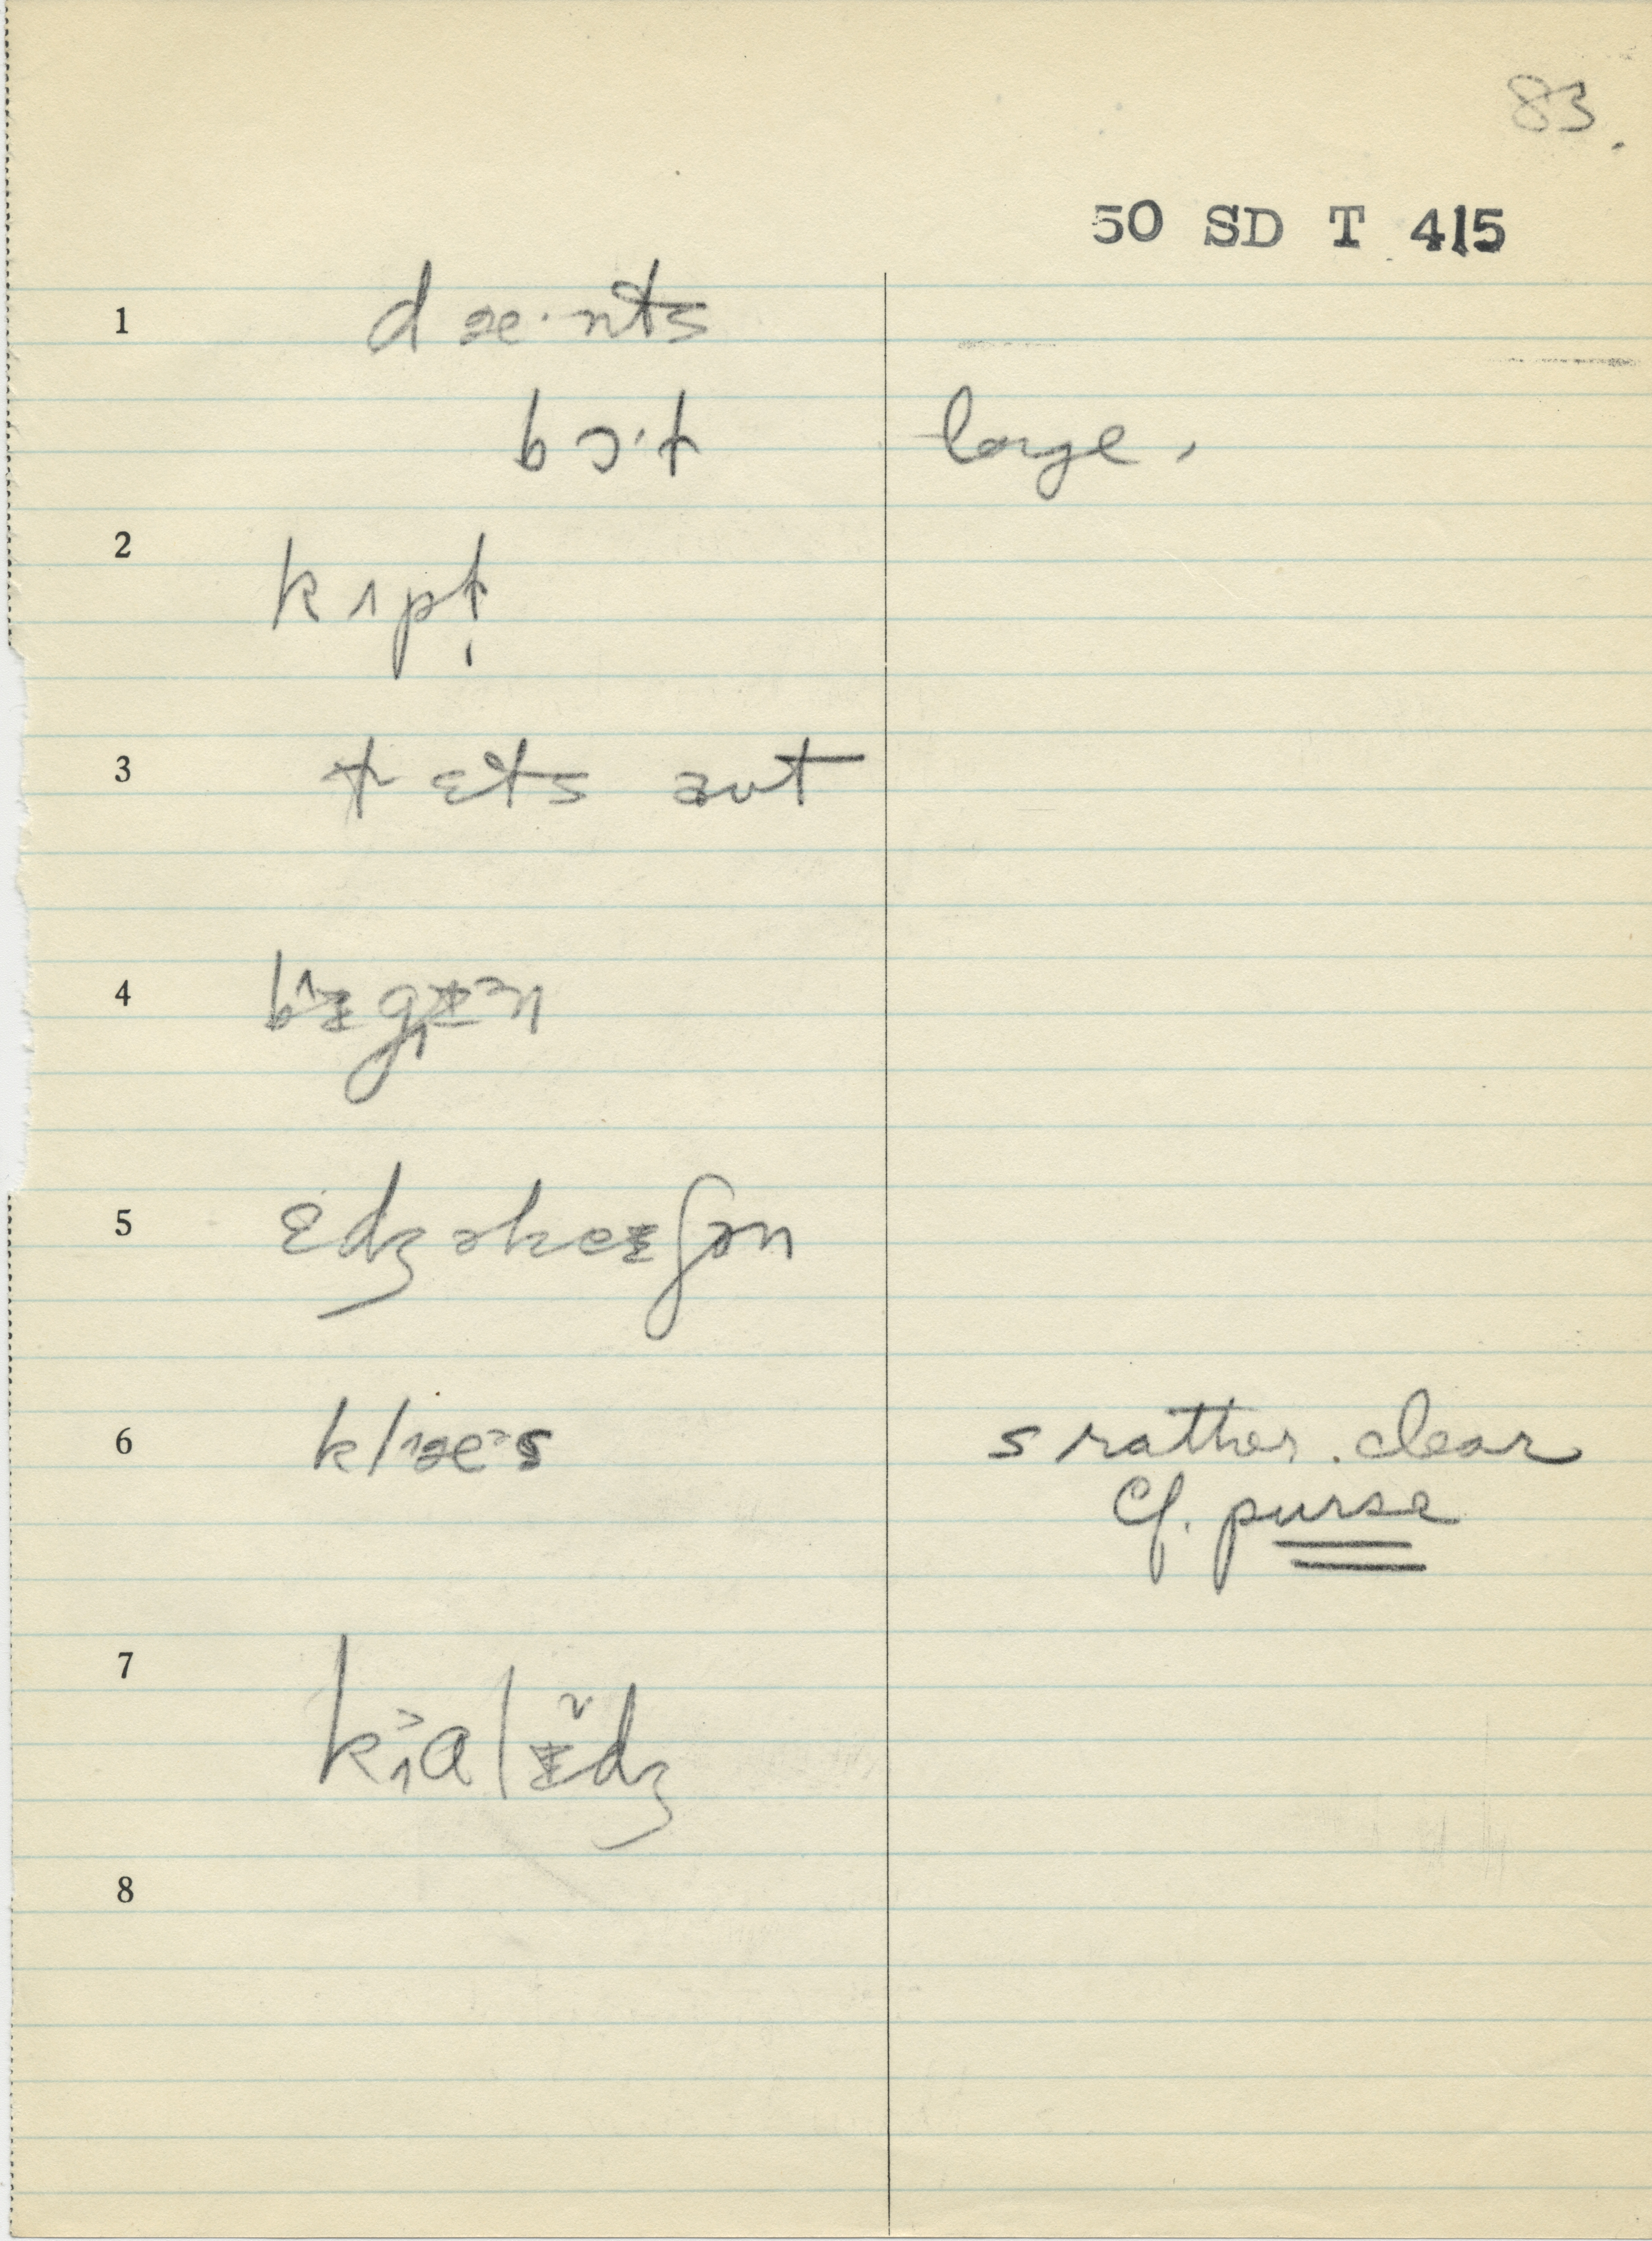 83.
50 SD T 415
1 dæ·nts
bɔ·t large,
2 kɪpt
3 tɛts aʊt
4
5 ɛdʒəkeɪʃən
6 s rather clear
Cf. purse
7
8